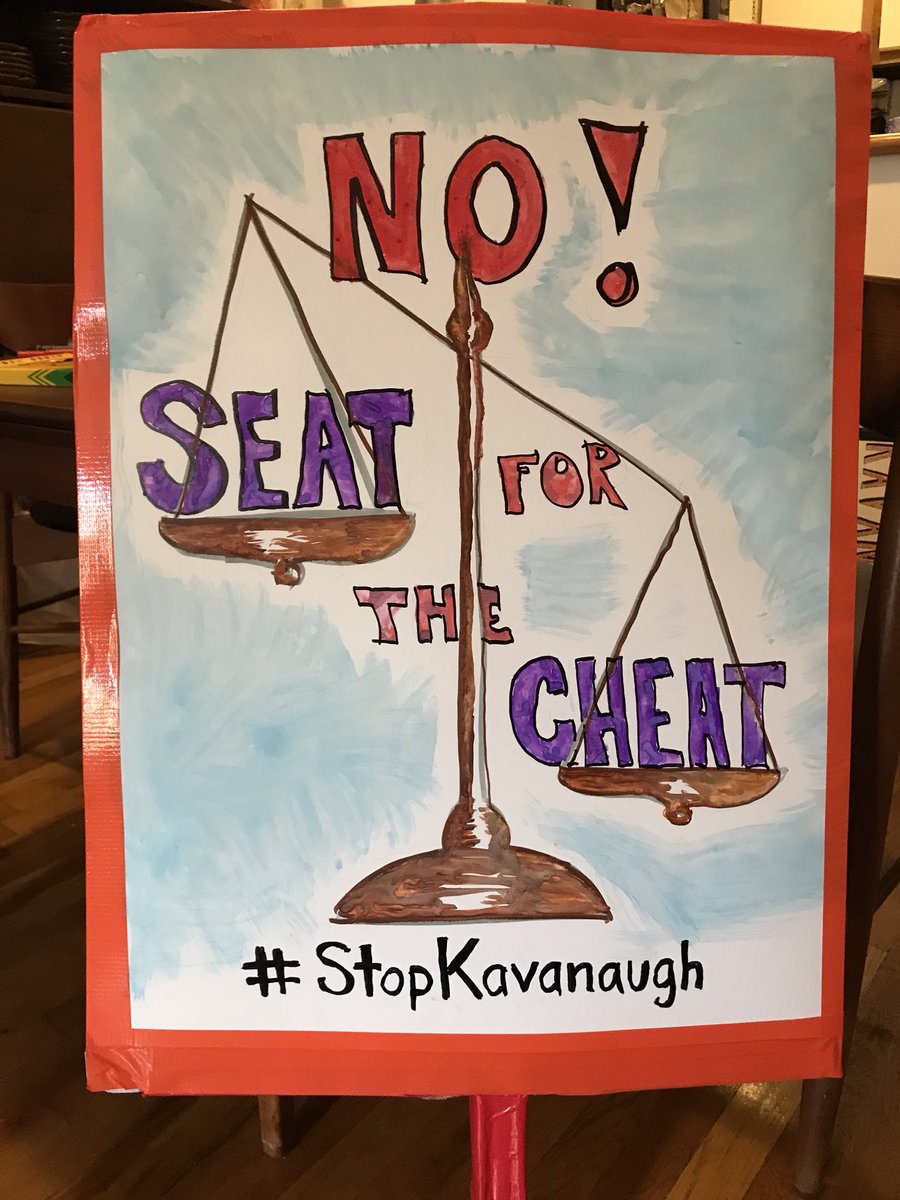 NO!
SEAT
FOR
THE
CHEAT
#StopKavanaugh